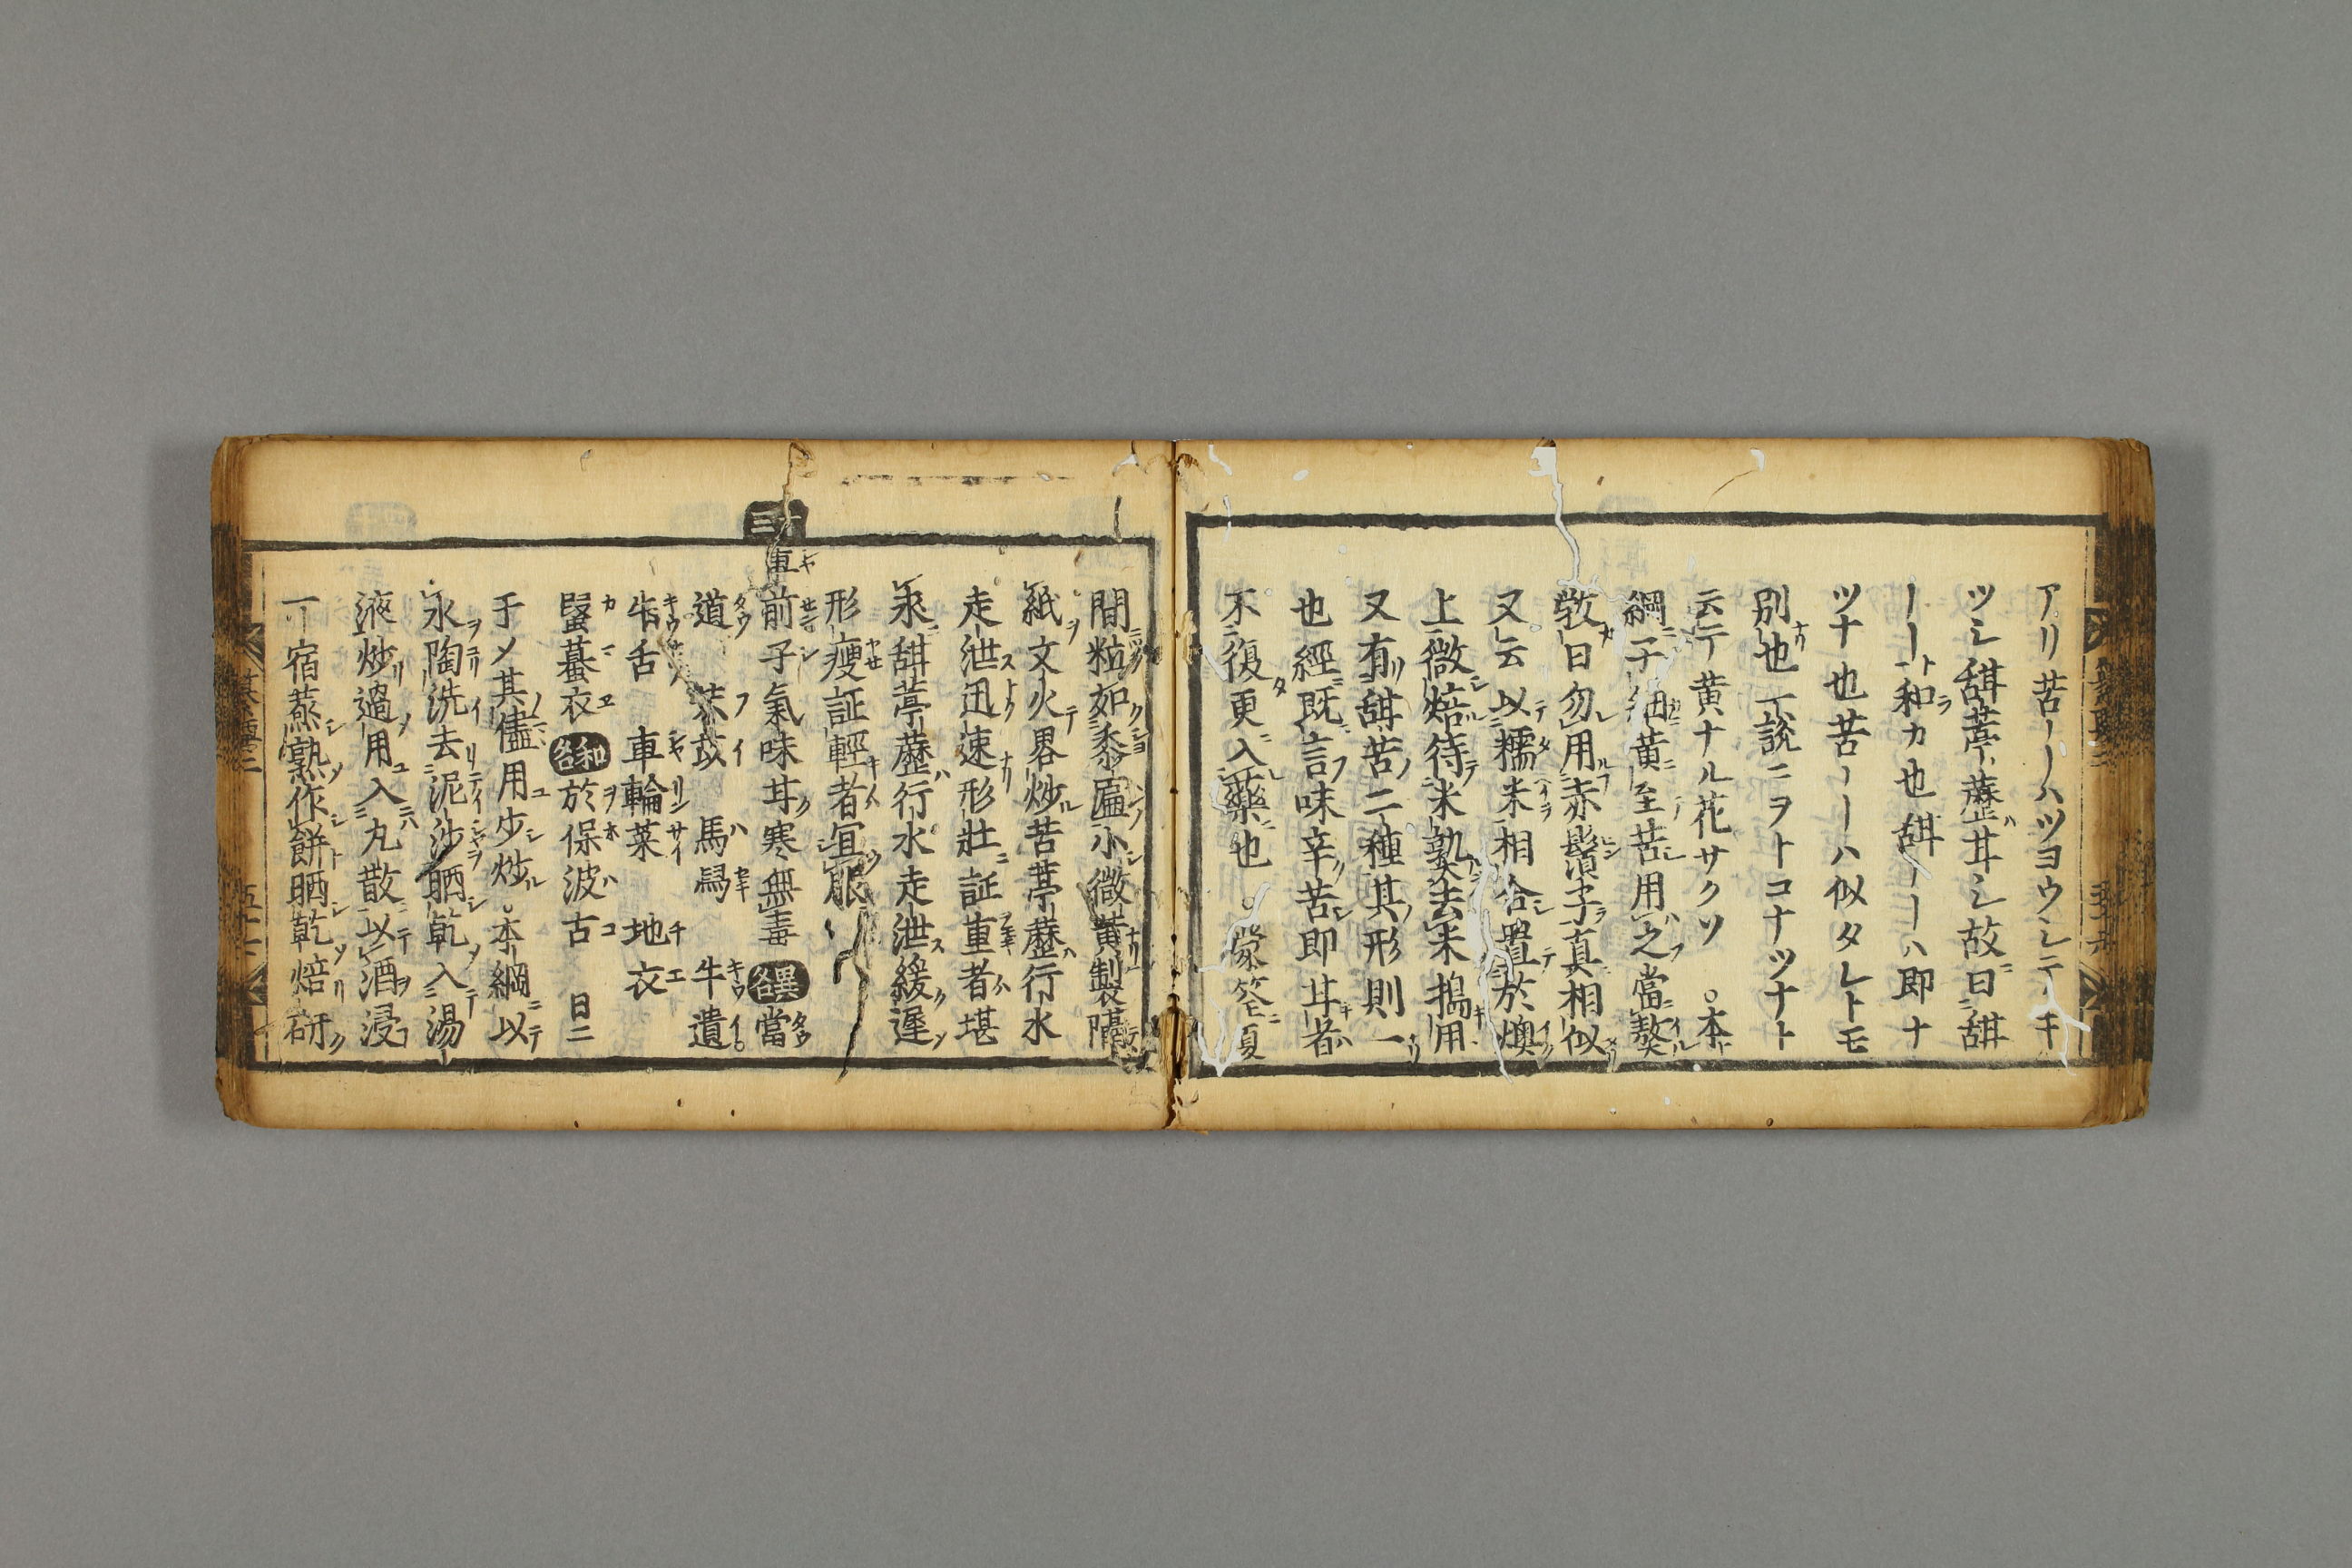 アリ苦ーーハツヨウシテーキ
ツシ甜葶藶甘シ故曰甜
ーートラ和カ也甜ーーハ即ナ
ツナ也苦ーーハ似タレトモ
別也一說ニヲトコナツナト
云テ黄ナル花サクソ○本
綱ニ子細黄至苦用之當熬
斆曰勿用赤鬚子真相似
又云以糯米相合置於燠
上微焙待米熟去米搗用
又有甜苦二種其形則一
也經既言味辛苦即甘者
不復更入藥也○蒙筌夏
間粒如黍匾小微黄製隔
紙文火畧炒苦葶藶行水
走泄迅速形壯証重者堪
求甜葶藶行水走泄緩遲
形瘦証輕者宜服
十三
車前子氣味甘寒無毒 異名 當
道 芣苡 馬舄 牛遺
牛舌 車輪菜 地衣
蝦蟇衣 和名 於保波古 日ニ
于メ其儘用少炒○本綱以
水陶洗去泥沙晒乾入湯
液炒過用入丸散以酒浸
一宿蒸熟作餅晒乾焙研